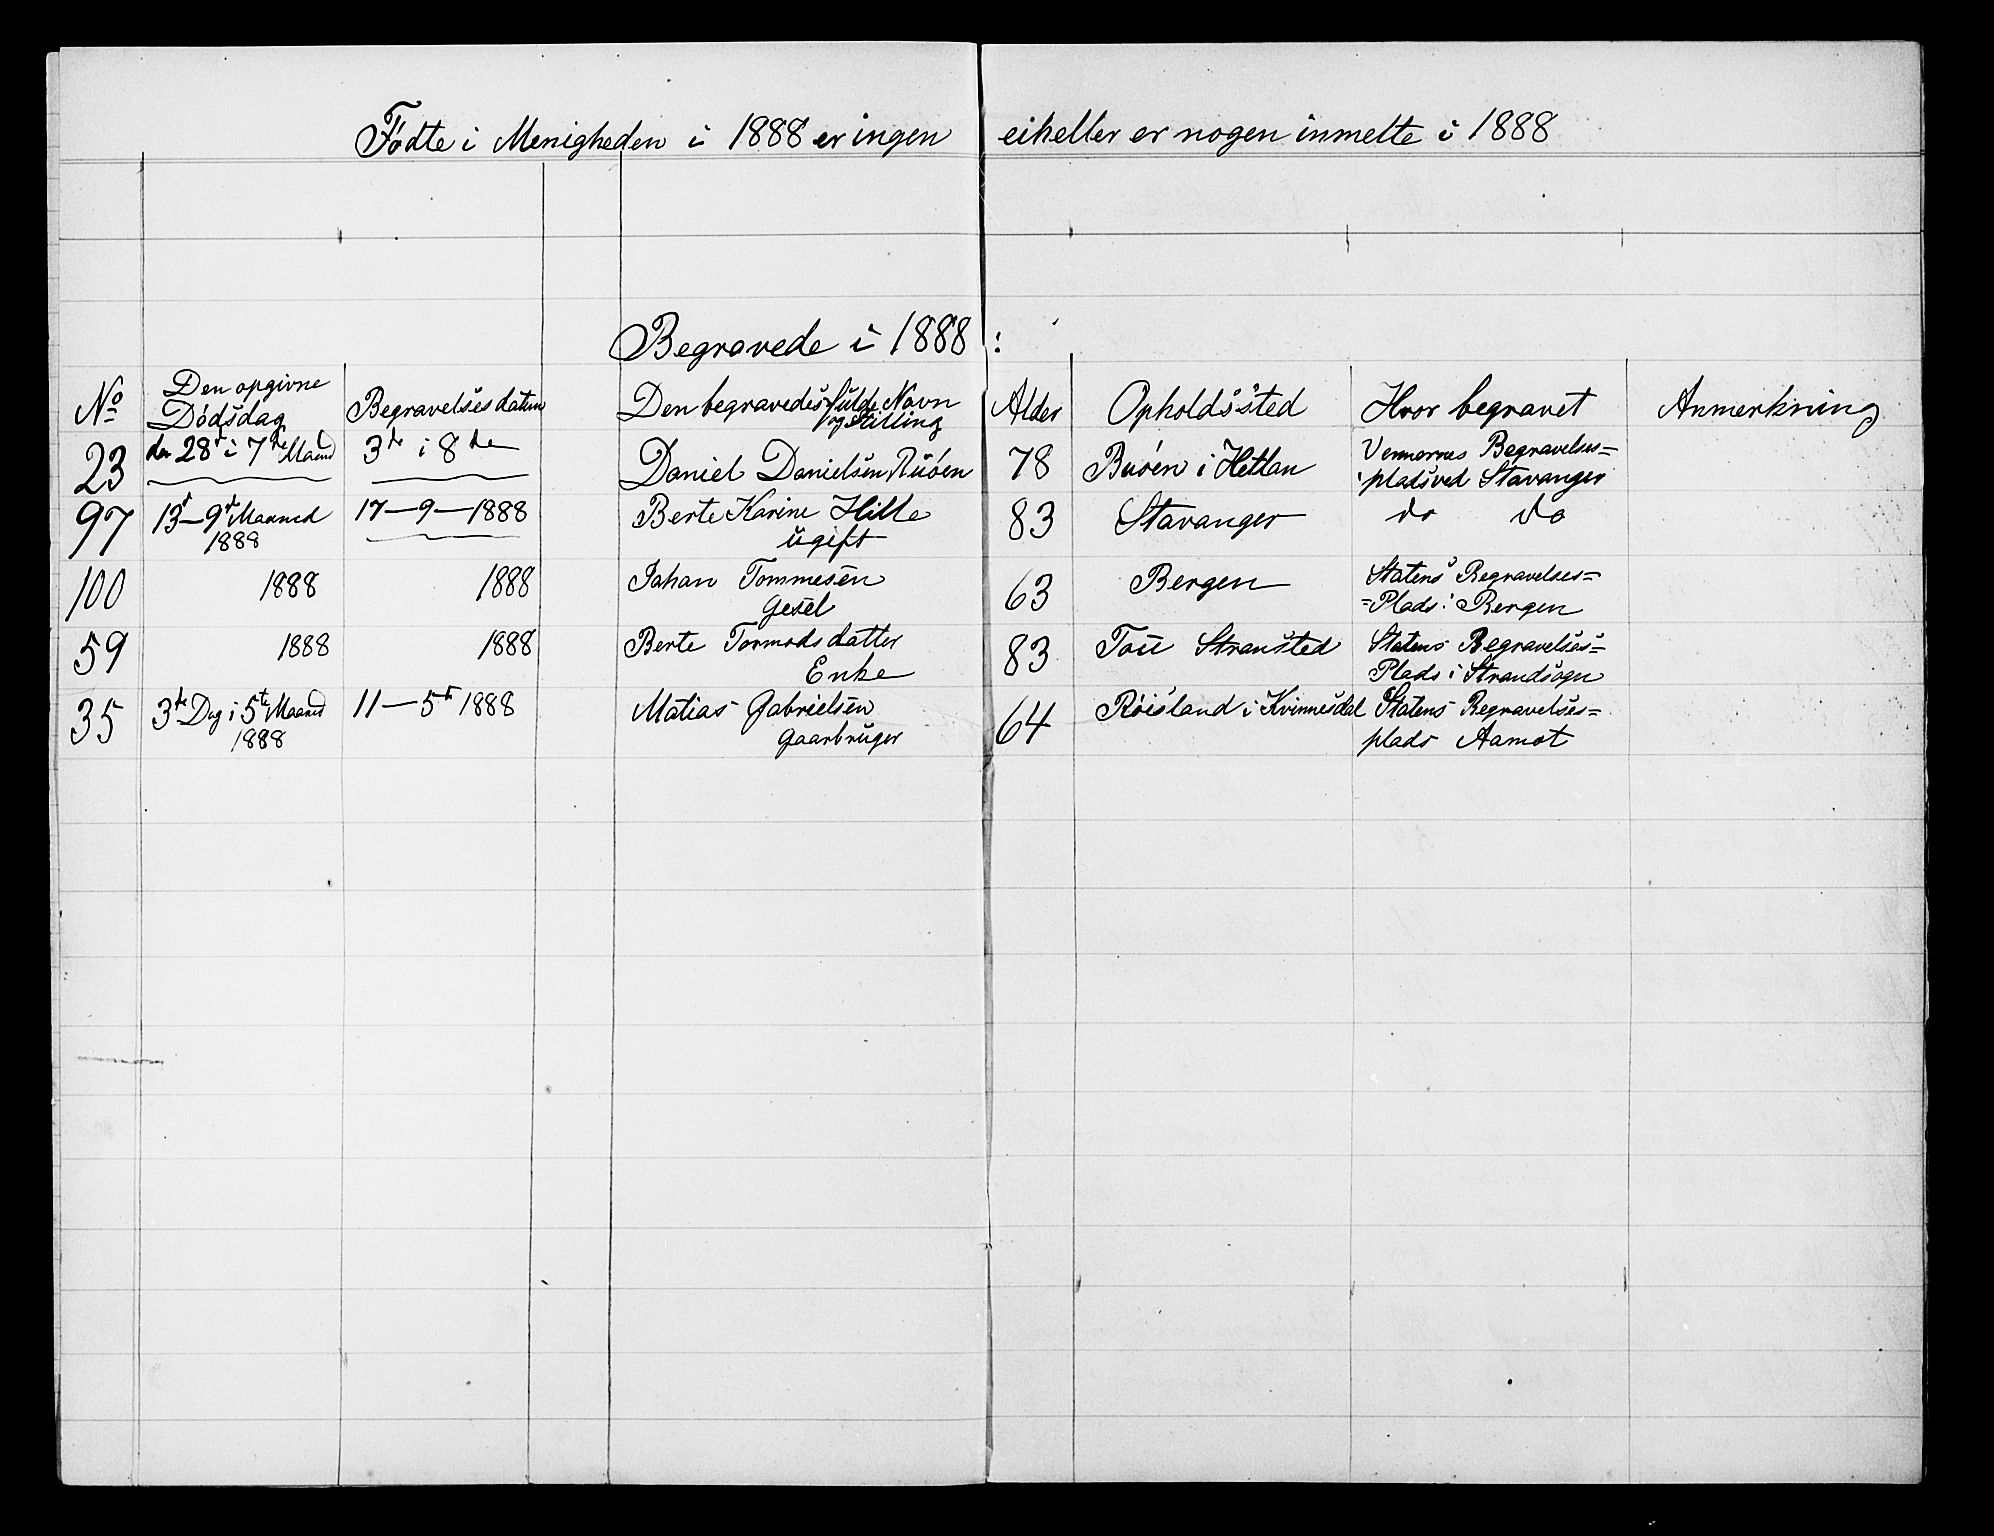 Fødte i Menigheden i 1888 er ingen eiheller er nogen inmelte i 1888
Begravede i 1888 :
No Den opgivne Dødsdag Begravelses datum Den begravedes fulde Navn og Stilling Alder Opholdssted Hvor begravet Anmerkning
23 den 28d i 7de Maand 3de i 8de Daniel Danielsen Büöen 78 Buöen i Hetlan Vennernes Begravelses=
pladsved Stavanger
97 13d—9de Maaned 17—9—1888 Berte Karine Hille 83 Stavanger do do
1888 ügift
100 1888 1888 Johan Tommesen 63 Bergen Statens Begravelses=
Gesel =Plads i Bergen
59 1888 1888 Berte Tormodsdatter 83 Toü Stransted Statens Begravelses=
Enke Plads i Strandsogn
35 3de Dag i 5te Maaned 11—5t 1888 Matias Gabrielsen 64 Röisland i Kvinnesdal Statens Begravelses=
1888 Gaarbrüger plads Aamot